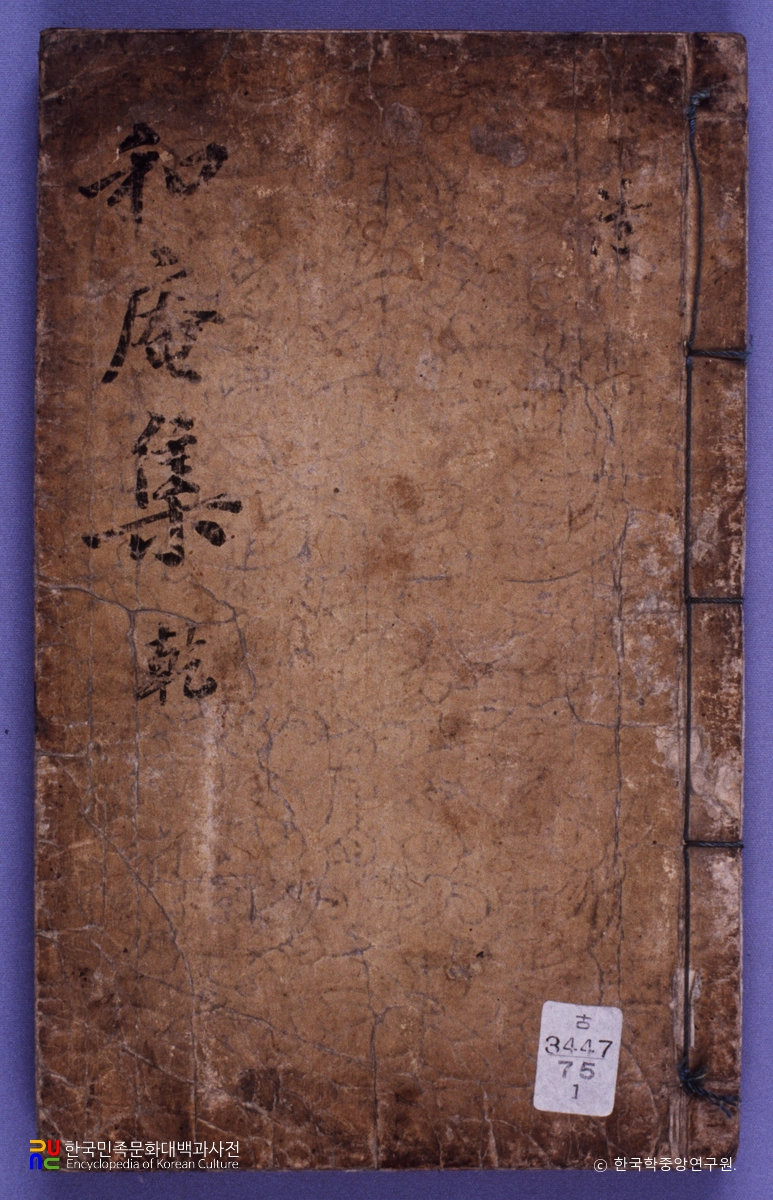 和庵集 乾
古
3447
75
1
한국민족문화대백과사전
Encyclopedia of Korean Culture
© 한국학중앙연구원.